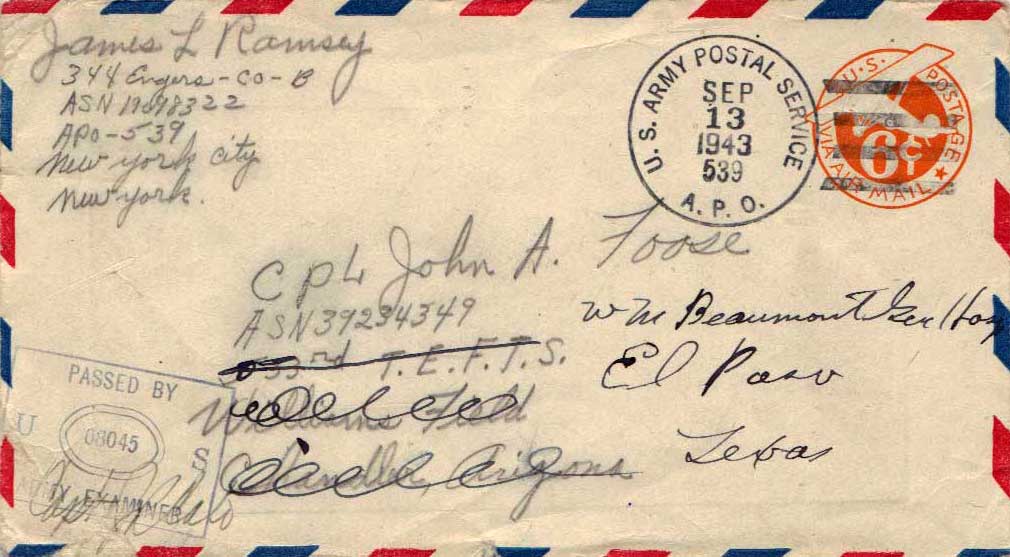 James L Ramsey
344 Engers-co-B
ASN 19098322
APO-539
New york city
New york.
U. S. ARMY POSTAL SERVICE
SEP
13
1943
539
A. P. O.
U.S. POSTAGE
6¢
VIA AIR MAIL
CPL John A. Foose
ASN 39234349
533rd T.E.F.T.S.
Williams Field
Chandler, Arizona
Wm Beaumont Gen Hosp
El Paso
Texas
PASSED BY
U 08045 S
ARMY EXAMINER